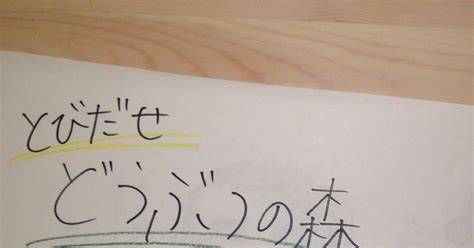 とびだせ
どうぶつの森